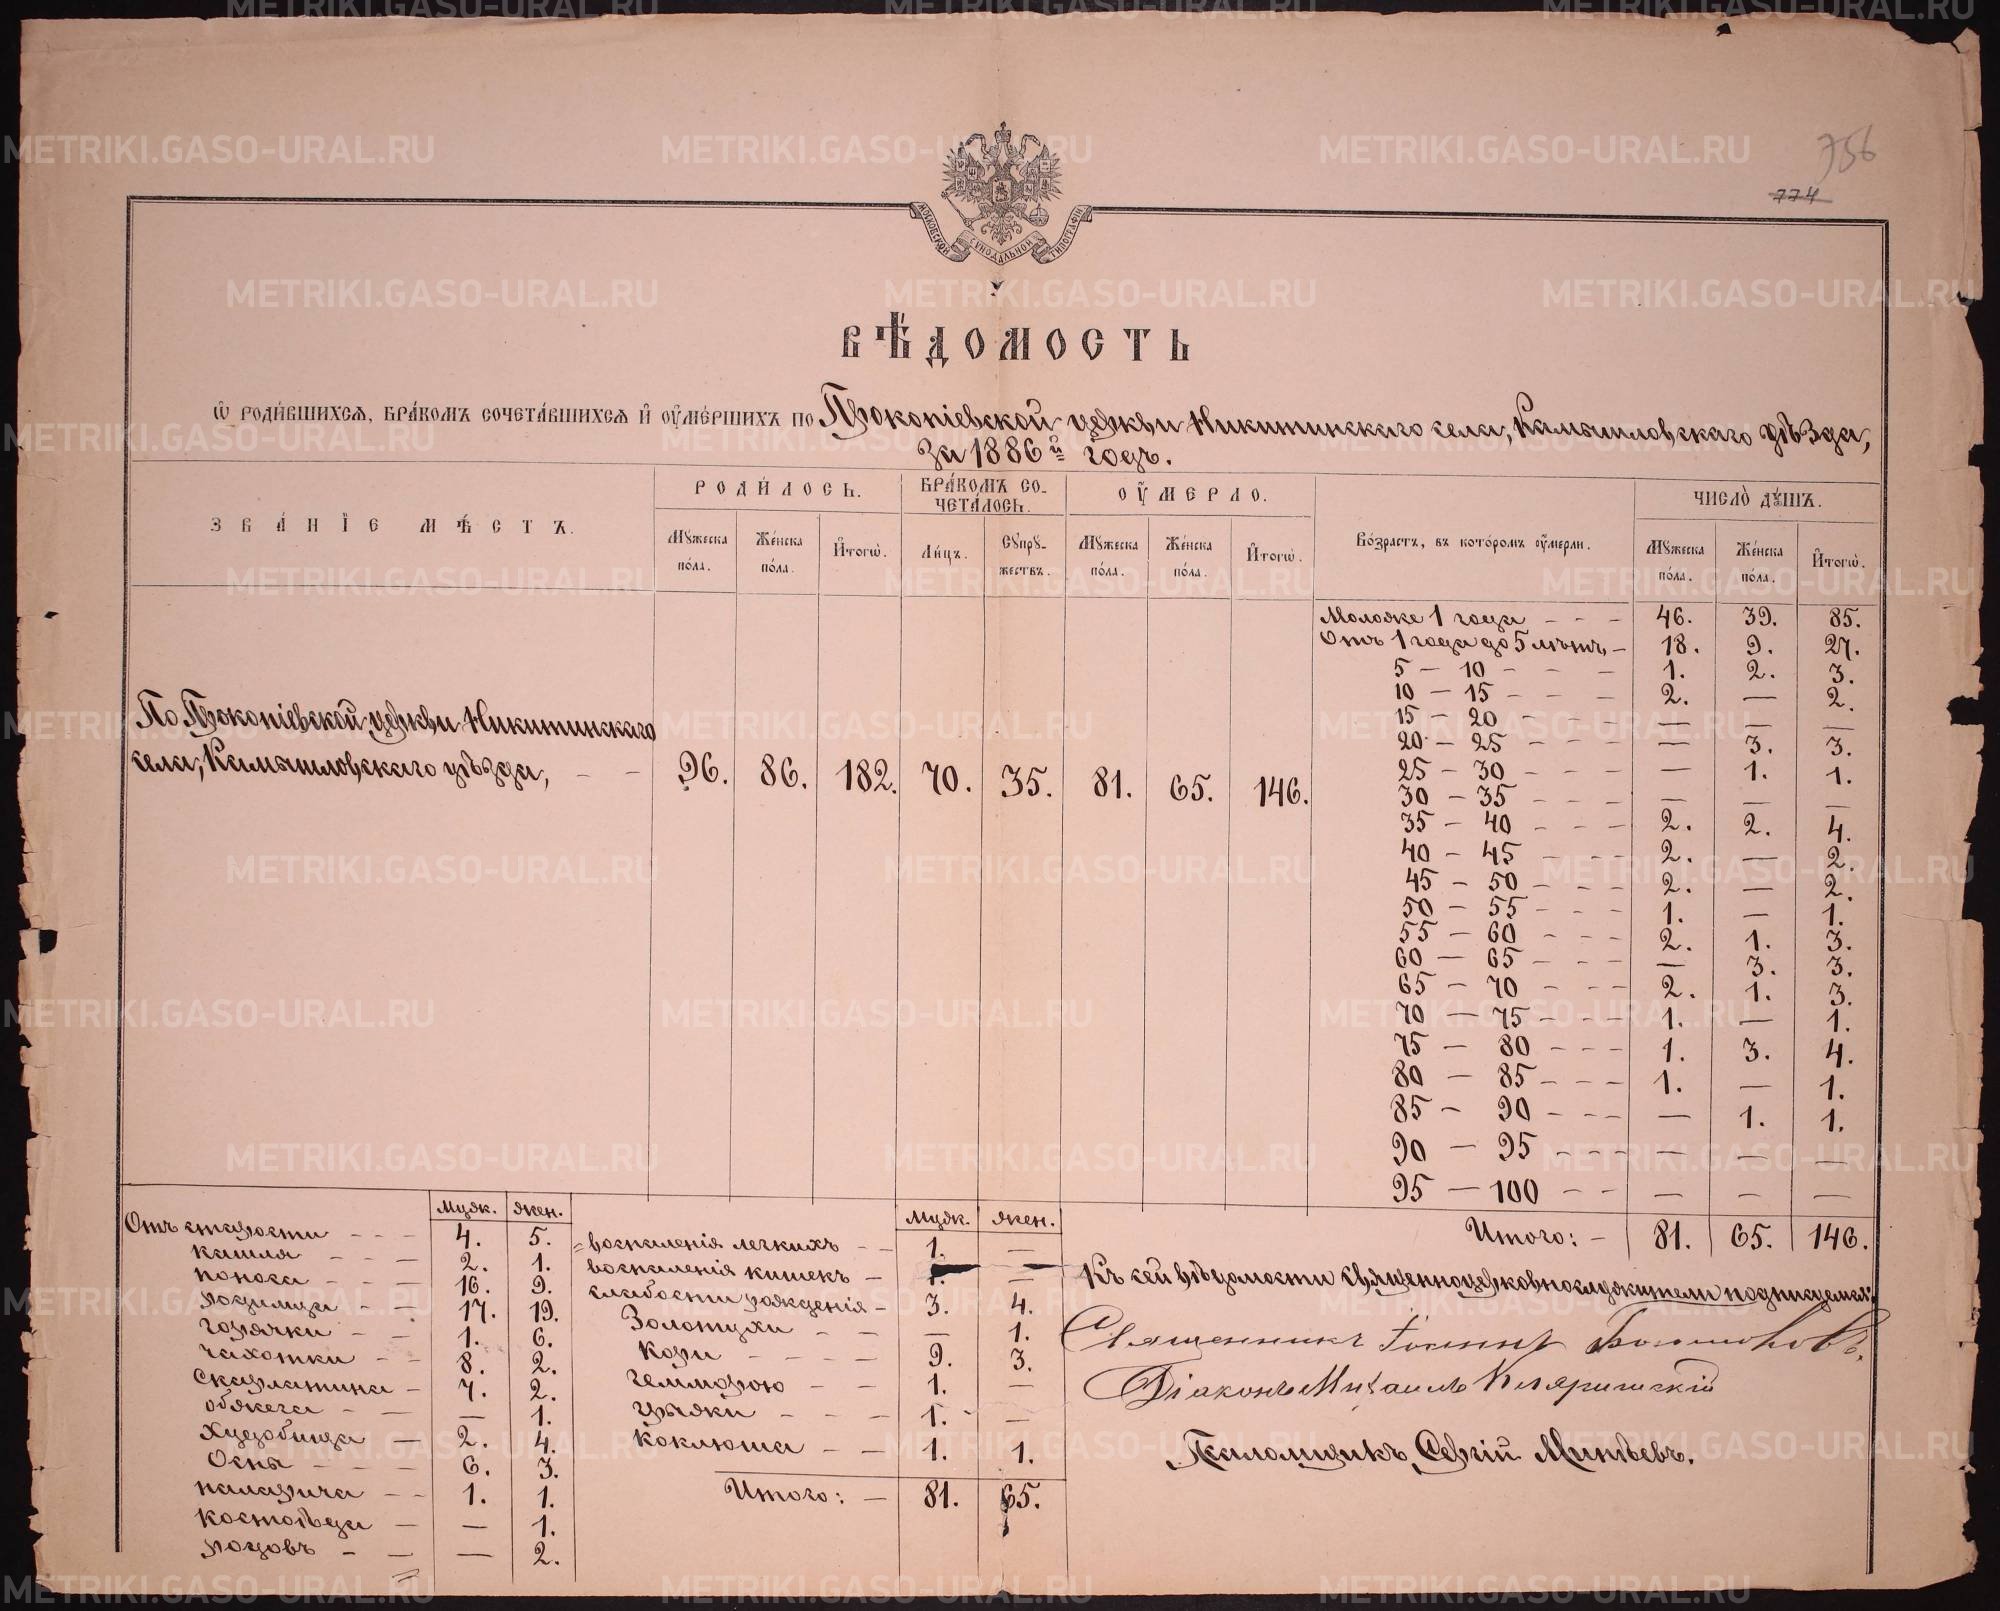 756
774
МОСКОВСКОЙ СѴНОДАЛЬНОЙ ТИПОГРАФІИ
ВѢ́ДОМОСТЬ
Ѿ РОДИ́ВШИХСѦ, БРА́КОМЪ СОЧЕТА́ВШИХСѦ И҆ ОУ҆МЕ́РШИХЪ ПО Прокопіевской церкви Никитинскаго села, Камышловскаго уѣзда,
За 1886й годъ.
ЗВА́НІЕ МѢ́СТЪ. РОДИ́ЛОСЬ. БРА́КОМЪ СО-ЧЕТА́ЛОСЬ. ОУ҆́МЕРЛО. Во́зрастъ, въ кото́ромъ оу҆́мерли. ЧИСЛО̀ ДꙊ́ШЪ.
Мꙋ́жеска по́ла. Же́нска по́ла. И҆тогѡ̀. Ли́цъ. Сꙋпрꙋ́-жествъ. Мꙋ́жеска по́ла. Же́нска по́ла. И҆тогѡ̀. Мꙋ́жеска по́ла. Же́нска по́ла. И҆тогѡ̀.
По Прокопіевской церкви Никитинскаго
села, Камышловскаго уѣзда, — — 96. 86. 182. 70. 35. 81. 65. 146.
Моложе 1 года - - - 46. 39. 85.
Отъ 1 года до 5 лѣтъ, - 18. 9. 27.
5 — 10 - - - 1. 2. 3.
10 — 15 - - - 2. — 2.
15 — 20 - - - — — —
20 — 25 - - - — 3. 3.
25 — 30 - - - — 1. 1.
30 — 35 - - - — — —
35 — 40 - - - 2. 2. 4.
40 — 45 - - - 2. — 2.
45 — 50 - - - 2. — 2.
50 — 55 - - - 1. — 1.
55 — 60 - - - 2. 1. 3.
60 — 65 - - - — 3. 3.
65 — 70 - - - 2. 1. 3.
70 — 75 - - - 1. — 1.
75 — 80 - - - 1. 3. 4.
80 — 85 - - - 1. — 1.
85 — 90 - - - — 1. 1.
90 — 95 - - - — — —
95 — 100 - - — — —
Итого: - 81. 65. 146.
Муж. жен.
Отъ старости - - - 4. 5.
кашля - - - 2. 1.
поноса - - - 16. 9.
родимца - - 17. 19.
горячки - - 1. 6.
чахотки - - 8. 2.
Скарлатина - 7. 2.
обжега - - — 1.
худобища — 2. 4.
Оспы - - - 6. 3.
паларича - - 1. 1.
костоѣда — — 1.
родовъ - — — 2.
Муж. жен.
воспаленія легкихъ - - 1. —
воспаленія кишекъ - 1. —
слабости рожденія - 3. 4.
Золотухи - - — 1.
Кори - - - - 9. 3.
геммарою - - 1. —
грыжи - - - 1. —
коклюша - - 1. 1.
Итого: — 81. 65.
Къ сей вѣдомости священноцерковнослужители подписуемся:
Священникъ Іоаннъ
Діаконъ Михаилъ
Псаломщикъ Сергій Минѣевъ.
METRIKI.GASO-URAL.RU